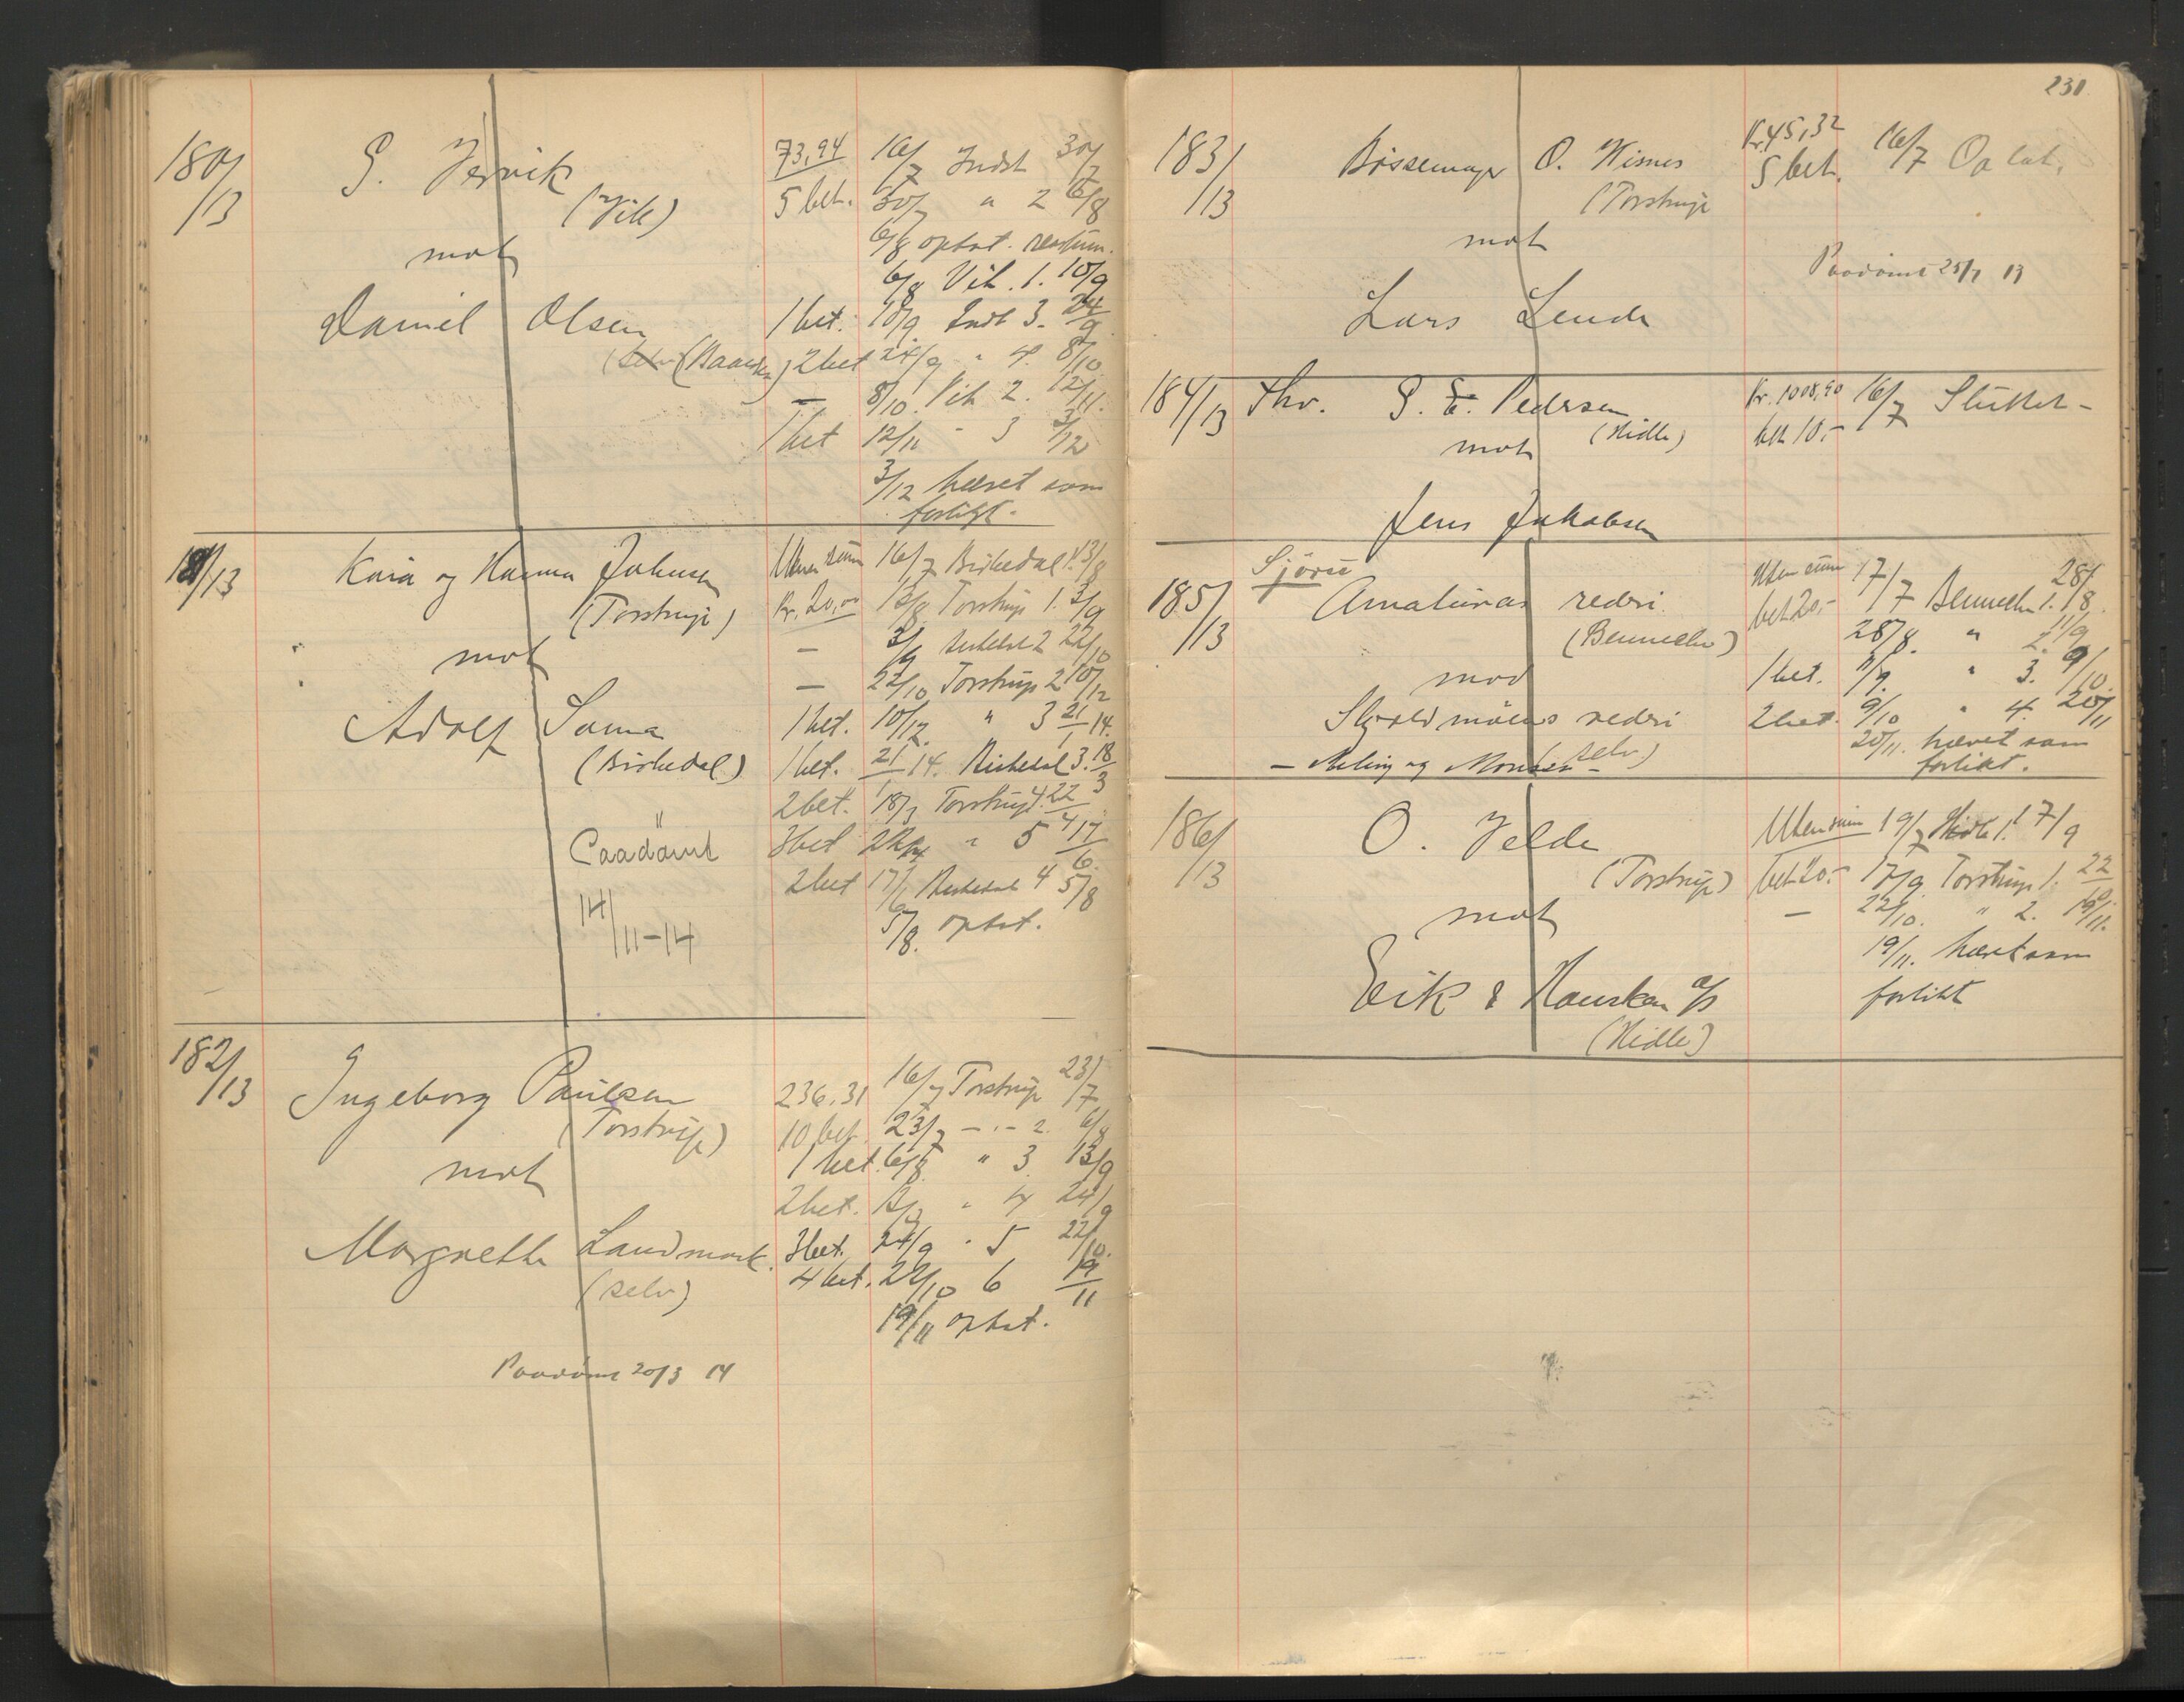 180/13
S. Jervik
(Vik)
mot
Daniel Olsen
73,94 16/7 Indst 30/7
5 bet. 30/7 " 2 6/8
6/8 optat.
6/8 Vik. 1. 10/9
1 bet. 10/9. Indst 3. 24/9
2 bet 24/9 " 4. 8/10
— 8/10. Vik 2. 12/11.
1 bet 12/11 " 3 3/12
3/12 hævet som
forlikt.
181/13
og Hanna Johnsen
(Torstrup)
mot
Adolf Soma
(Birkedal)
Paadömt
14/11-14
Uten sum 16/7 Birkedal 1. 13/8
Kr. 20,00 13/8 Torstrup 1. 3/9
— 3/9 Birkedal 2 22/10
— 22/10 Torstrup 2 10/12
1 bet. 10/12. " 3 21/1 14.
1 bet. 21/1 14. Birkedal 3. 18/3
2 bet. 18/3 Torstrup 4. 22/4
3 bet 22/4 " 5 17/6.
2 bet 17/6 Birkedal 4 5/8
5/8. optat.
182/13
Ingeborg Paulsen
(Torstrup)
mot
Margrethe Landmark.
(selv)
236.31 16/7 Torstrup 23/7
10 bet. 23/7 — " — 2. 6/8
1 bet. 6/8 " 3. 13/9
2 bet. " 4 24/9
3 bet. 24/9 " 5 22/10.
4 bet. 22/10 6 19/11
19/11 optat.
Paadömt 20/3 14
230
183/13
Bössemager O. Wisnes
(Torstrup
mot
Lars Lende
Kr. 45,32 16/7 Optat.
5 bet.
Paadömt 25/7 13
184/13 Ths. S. E. Pedersen
(Hidle)
mot
Jens Jakobsen
Kr. 1008,90 16/7 Sluttet -
bet 10.-
185/13
Sjöret
Amatunas rederi
(Bennechen)
mod
Skjoldmöens rederi
selv)
Uten sum 17/7 Bennechen 1. 28/8.
bet 20.- 28/8. " 2. 11/9
1 bet. 11/9. " 3. 9/10.
2 bet. 9/10 " 4. 20/11
20/11. hævet som
forlikt.
186/13
O. Velde
(Torstrup)
mot
Eik & Hausken A/S
(Hidle)
Uten sum 19/7 Hidle 1. 17/9
bet 20.- 17/9 Torstrup 1. 22/10.
— 22/10. " 2. 19/11.
19/11. hævet som
forlikt